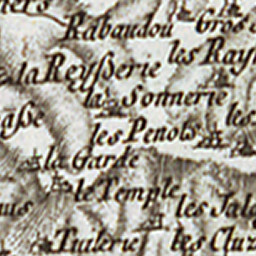 Rabaudou
Gros
les Ray
la Reyßerie
la Sonnerie
les
aße
les Penots
la Garde
le Temple
les Jal
uis
Tuilerie
les Cluz